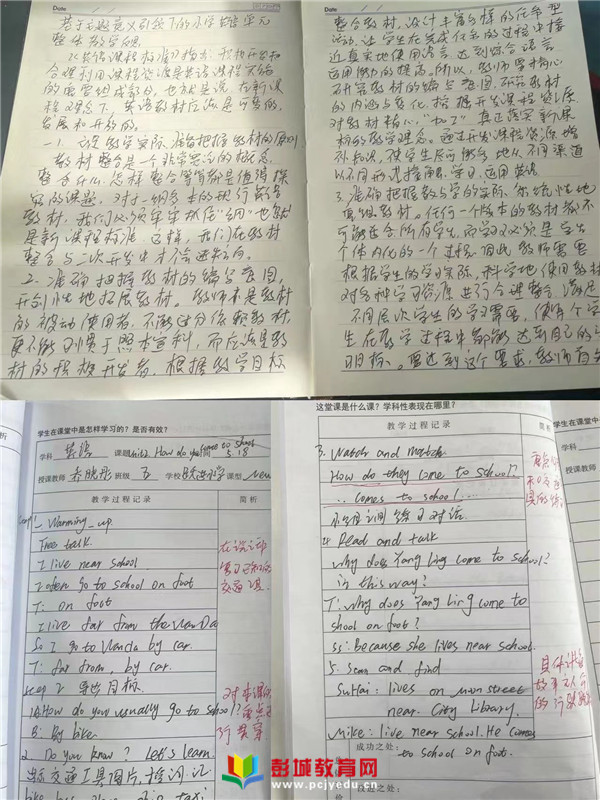 Date
基于主题意义引领下的小学英语单元
整体教学实践
《英语课程标准》指出:积极开发和
合理利用课程资源是英语课程实施
的重要组成部分。也就是说,在新课
程理念下,英语教材应该是可变的、
发展和开放的。
一、1. 立足教学实际,准确把握教材的原则
教材整合是一个非常宽泛的概念,
整合什么,怎样整合等等都是值得探
究的课题。对于
教材,我们必须牢牢抓住"纲"也就
是新课程标准。这样,我们在教材
整合与二次开发中才不会迷失方向。
2. 准确把握教材的编写意图,
开创性地拓展教材。教师不是教材
的被动使用者,不能过分依赖教材,
更不能习惯于照本宣科,而应该是教
材的积极开发者,根据教学目标
Date
整合教材,设计丰富多样的任务型
活动,让学生在完成任务的过程中接
近真实地使用语言,达到综合语言
运用能力的提高。所以,教师要精心
研究教材的编写意图,研究教材
的内涵与变化,挖掘开发课程资源,
对教材精心"加工",真正落实新课
标的教学理念。通过开发课程资源,增
补知识,使学生尽可能多地从不同渠道
以不同形式接触、学习、运用英语
3. 准确把握教与学的实际,创造性地
重组教材。任何一个版本的教材都不
可能适合所有学生,而学习必定是学生
个体内化的一个过程。因此,教师需要
根据学生的学习实际,科学地使用教材,
对各种学习资源进行合理整合,满足
不同层次学生的学习需要,使每个学
生在学习过程中都能达到自己的学
习目标。要达到这个要求,教师首先
学生在课堂中是怎样学习的?是否有效?
学科 英语 课题 Unit2 How do you come to school 5.18
授课教师 班级 五 学校 小学 课型 New
教学过程记录 简析
Step1 Warming-up
Free talk
I live near school
I often go to school on foot
T: on foot
I live far from the WanDa
So I go to Wanda by car.
T: far from, by car.
Step 2 导出目标.
A: How do you usually go to school?
B: By bike.
2. Do you know? Let's learn
出示交通工具图片,
在谈话中
复习已知的
交通工具
这堂课是什么课?学科性表现在哪里?
教学过程记录 简析
3. Watch and match
How do they come to school?
... comes to school ...
小组训练练习对话.
4. Read and talk
Why does Yang Ling come to school
in this way?
T: Why does Yang Ling come to
shool on foot?
Ss: Because she lives near school.
5. Scan and find
SuHai: lives on Moon Street
near City Library.
Mike: live near school. He comes
to school on foot.
成功之处:
改进之处:
彭城教育网
www.pcjyedu.cn